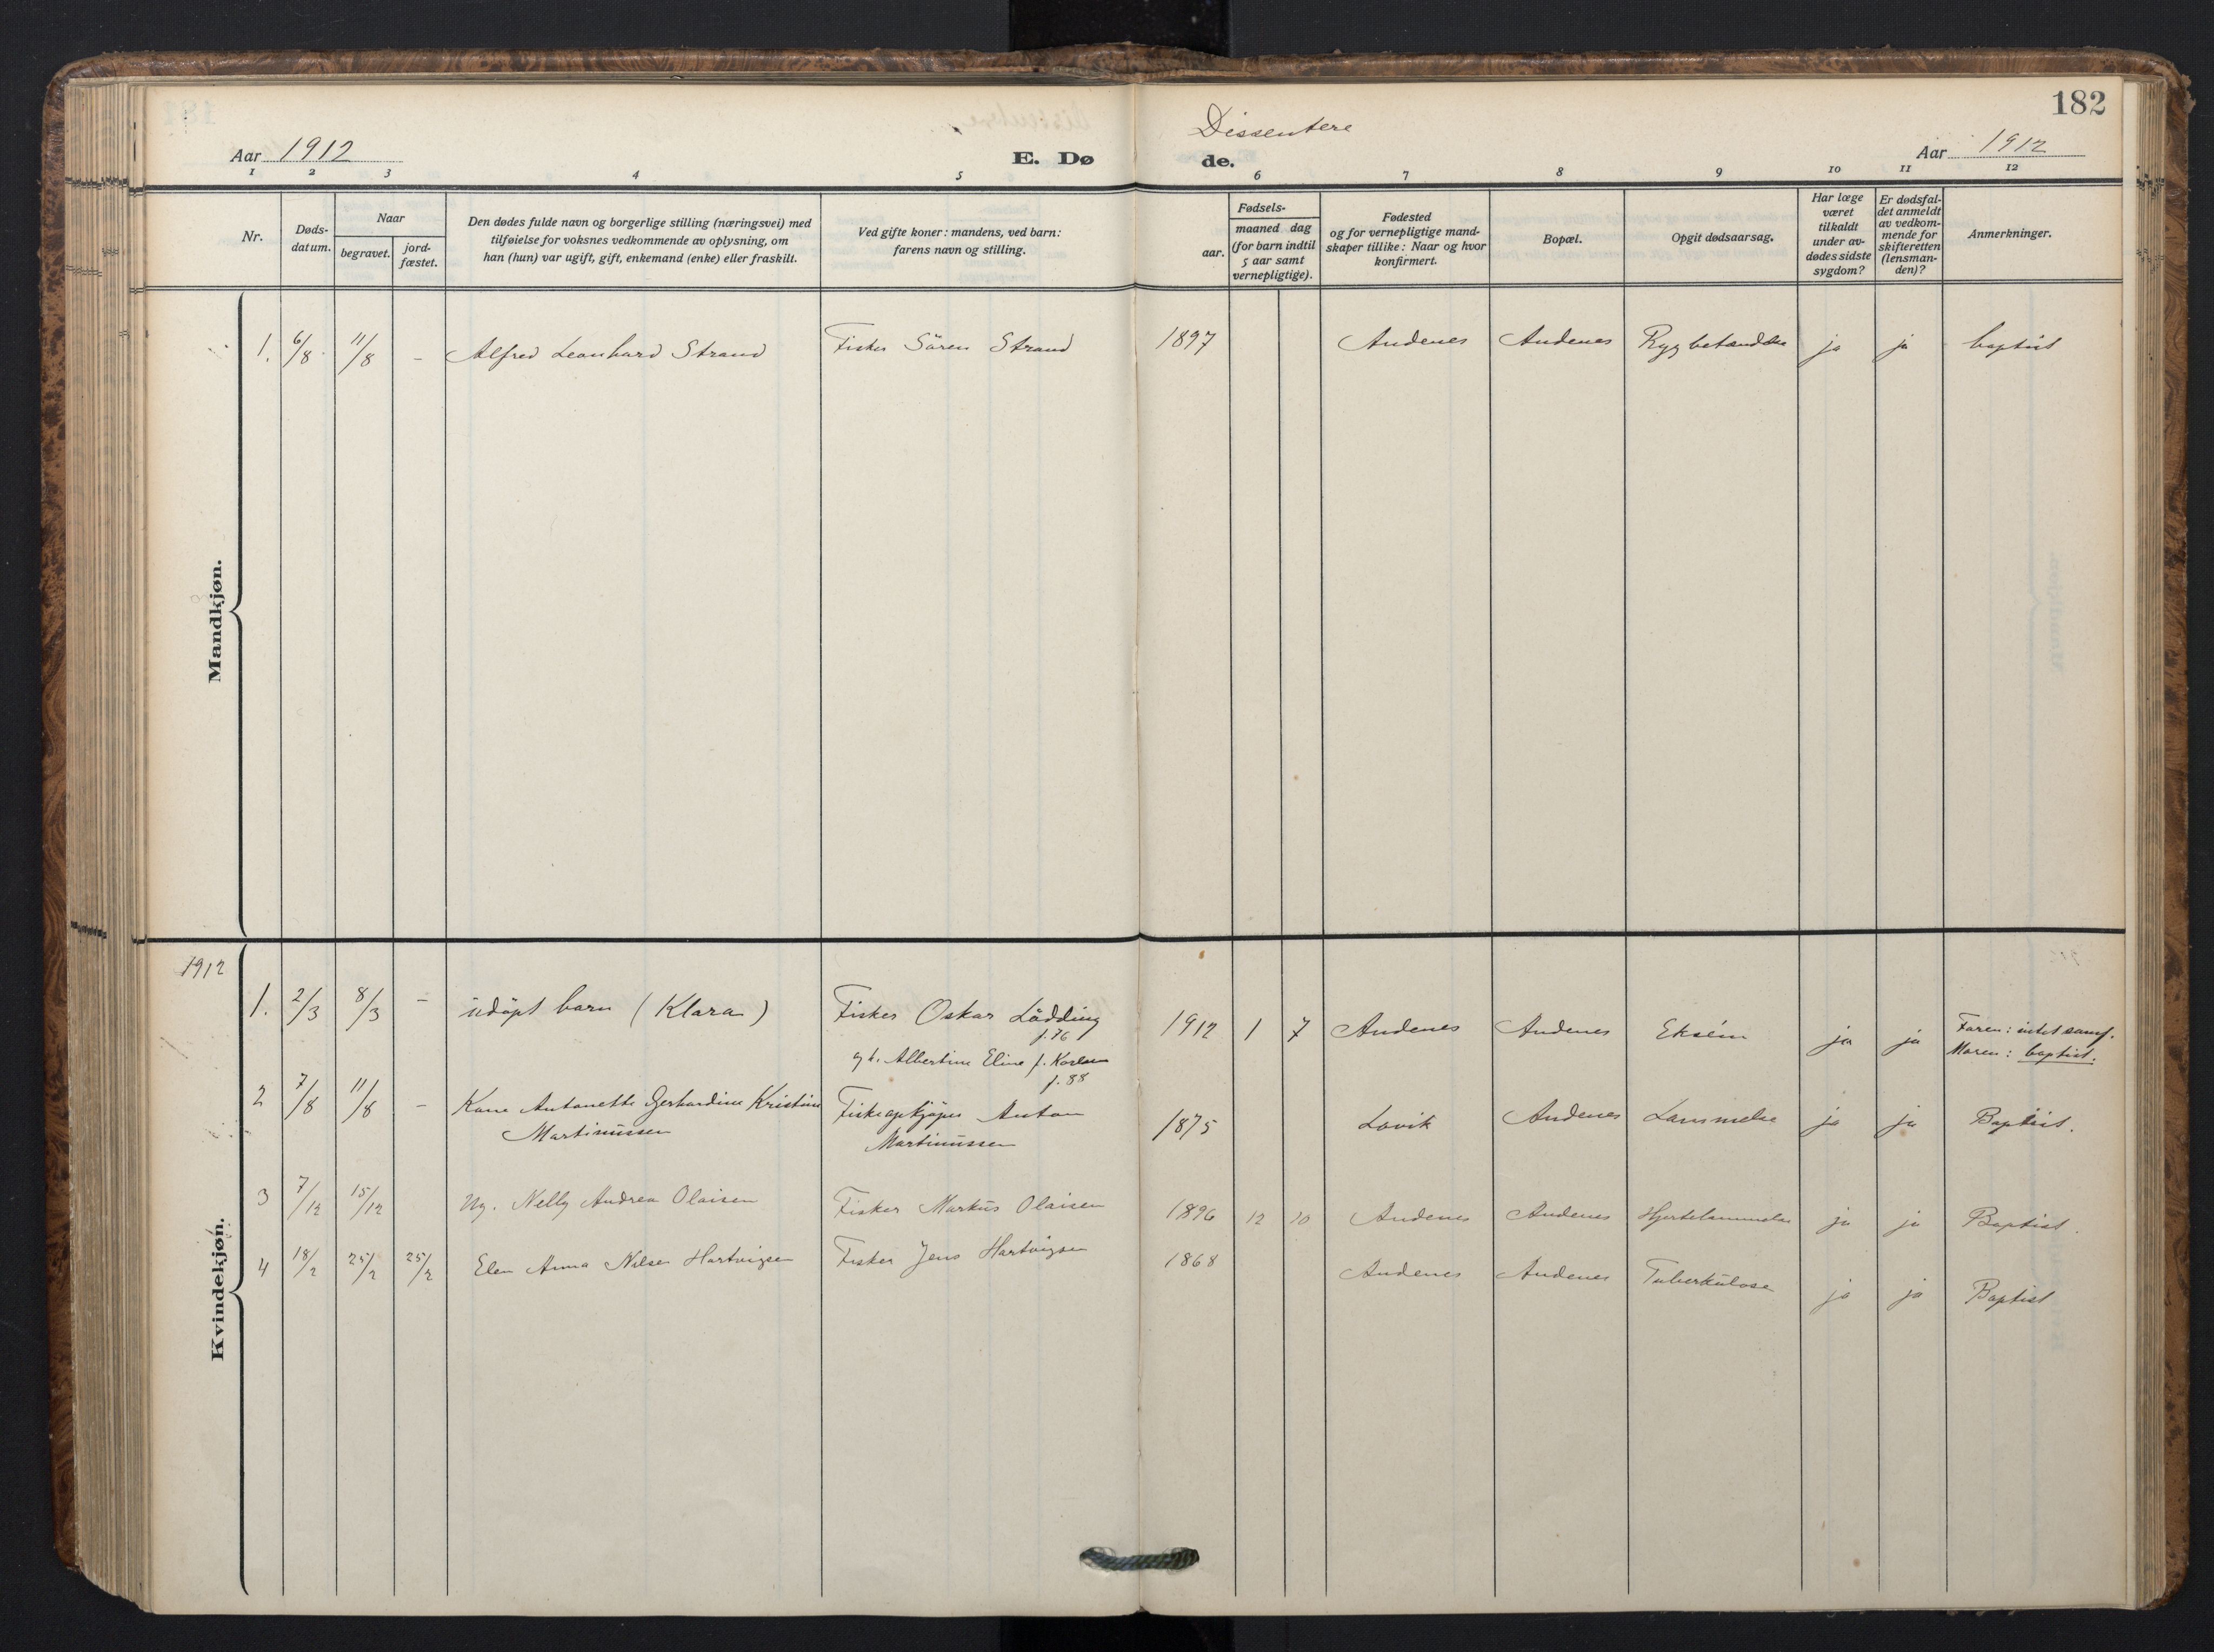 182
Dissentere
Aar 1912
E. Dø
de.
Aar 1912
1 2 3 4 5 6 7 8 9 10 11 12
Nr.
Døds-
datum.
Naar
begravet.
jord-
fæstet.
Den dødes fulde navn og borgerlige stilling (næringsvei) med
tilføielse for voksnes vedkommende av oplysning, om
han (hun) var ugift, gift, enkemand (enke) eller fraskilt.
Ved gifte koner: mandens, ved barn:
farens navn og stilling.
Fødsels-
aar.
maaned dag
(for barn indtil
5 aar samt
vernepligtige).
Fødested
og for vernepligtige mand-
skaper tillike: Naar og hvor
konfirmert.
Bopæl.
Opgit dødsaarsag.
Har læge
været
tilkaldt
under av-
dødes sidste
sygdom?
Er dødsfal-
det anmeldt
av vedkom-
mende for
skifteretten
(lensman-
den)?
Anmerkninger.
Mandkjøn.
1. 6/8 11/8 - Alfred Leonhard Strand Fisker Sören Strand 1897 Andenes Andenes Rygbetændelse ja ja baptist
1912
Kvindekjøn.
1. 2/3 8/3 - udöpt barn (Klara) Fisker Oskar Lødding 1912 1 7 Andenes Andenes Eksém ja ja Faren: intet samf.
f. 76
Moren: baptist.
og h. Albertine Eline f. Karlsen
f. 88
2 7/8 11/8 - Kone Antonette Gerhardine Kristine Fiskeopkjöper Anton 1875 Lovik Andenes Lammelse ja ja Baptist.
Martinussen Martinussen
3 7/12 15/12 Ug. Nelly Andrea Olaisen Fisker Markus Olaisen 1896 12 10 Andenes Andenes Hjertelammelse ja ja Baptist.
4 18/2 25/2 25/2 Elen Anna Nilsen Hartvigsen Fisker Jens Hartvigsen 1868 Andenes Andenes Tuberkulose ja ja Baptist